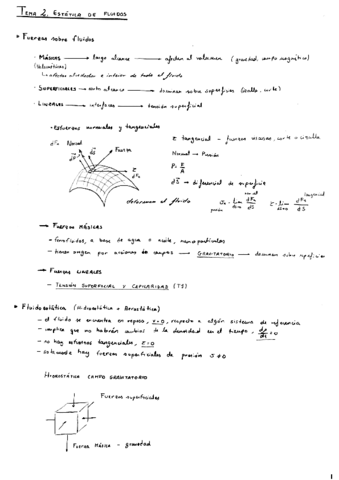 TEMA 2. ESTÁTICA DE FLUIDOS
▸ Fuerzas sobre fluidos
· MÁSICAS → largo alcance → afectan al volumen (gravedad, campo magnético)
(Volumétricas)
· SUPERFICIALES → corto alcance → actúan sobre superficies
· LINEALES → interfases → tensión superficial
• Esfuerzos normales y tangenciales
dFn Normal
dS
Fuerza
τ
dFt
τ tangencial → fuerzas viscosas, corte = cizalla
Normal → Presión
P = F/A
dS → diferencial de superficie
deforman al fluido
normal
tangencial
σn = lim dFn/dS
τ = lim dFt/dS
presión
→ FUERZAS MÁSICAS
- ferrofluidos, a base de agua o aceite, nanopartículas
- tienen origen por acciones de campos → GRAVITATORIO →
→ FUERZAS LINEALES
- TENSIÓN SUPERFICIAL Y CAPILARIDAD (T5)
▸ Fluidoestática (Hidrostática o Aerostática)
- el fluido se encuentra en reposo, v=0, respecto a algún sistema de referencia
- implica que no habrán cambios de la densidad en el tiempo → dρ/dt = 0
- no hay esfuerzos tangenciales, τ=0
- solamente hay fuerzas superficiales de presión σ≠0
HIDROSTÁTICA CAMPO GRAVITATORIO
Fuerzas superficiales
Fuerza Másica - gravedad
1